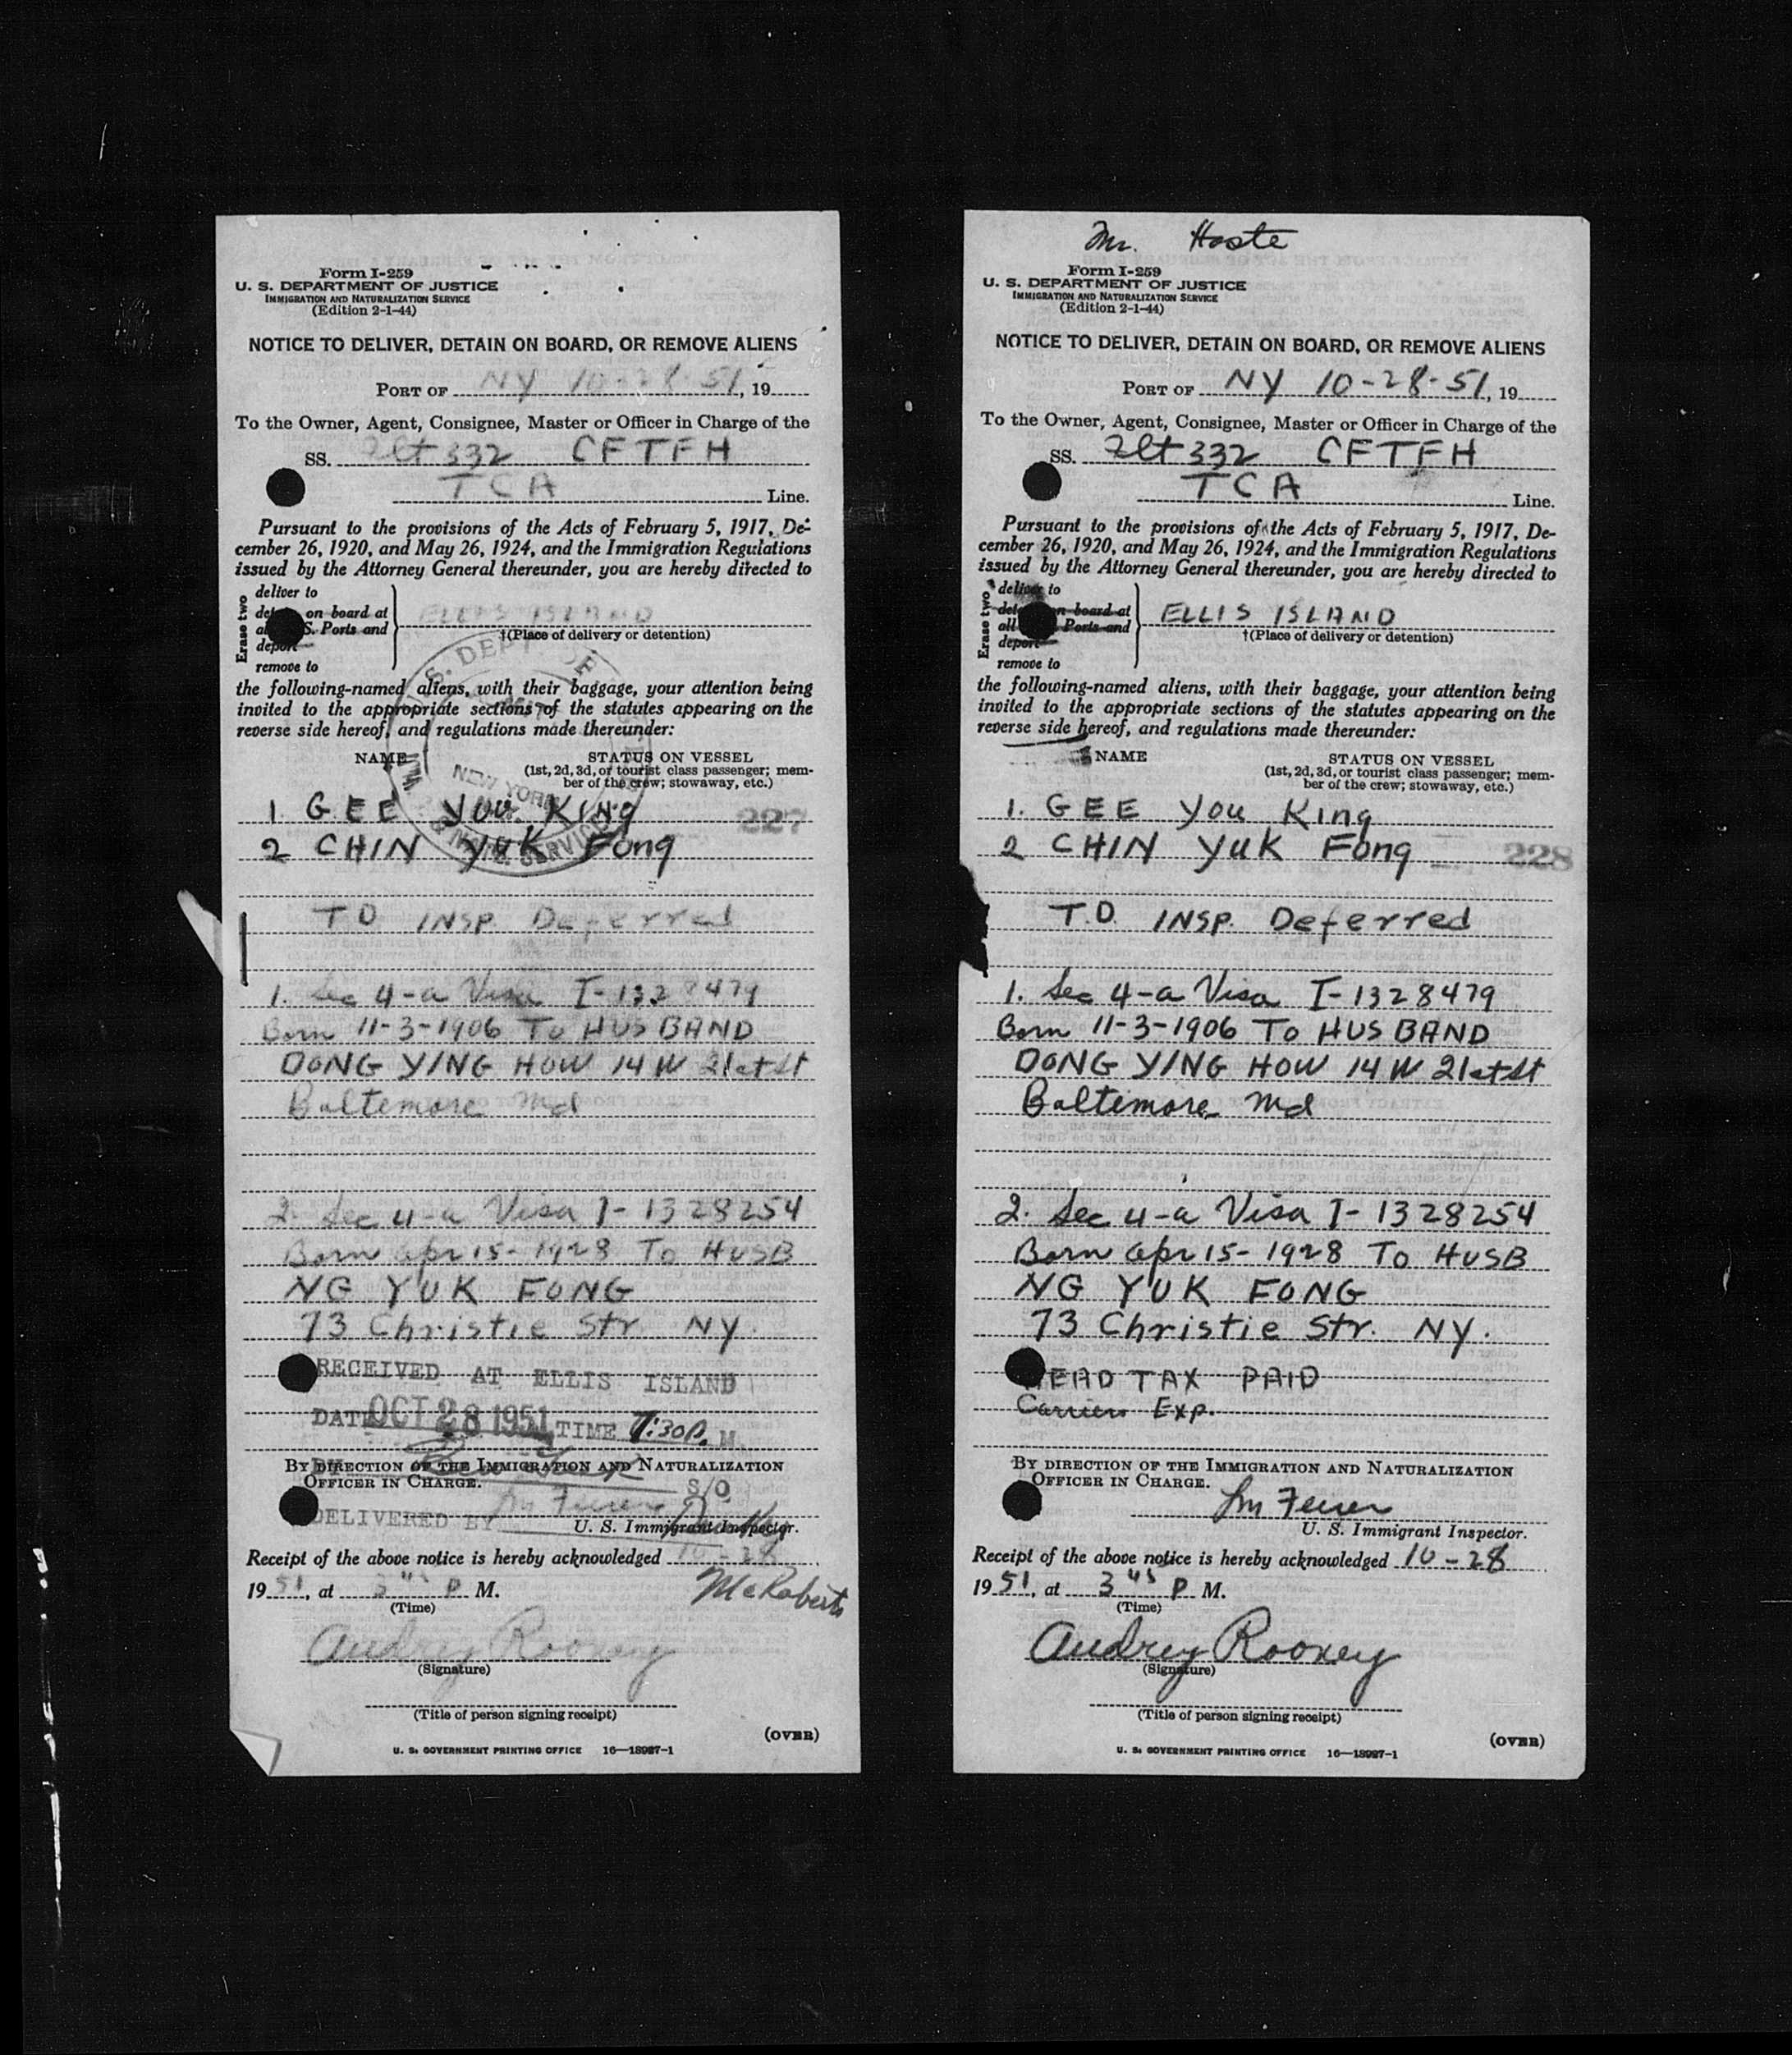 Form I-259
U. S. DEPARTMENT OF JUSTICE
IMMIGRATION AND NATURALIZATION SERVICE
(Edition 2-1-44)
NOTICE TO DELIVER, DETAIN ON BOARD, OR REMOVE ALIENS
PORT OF NY 10-28-51, 19
To the Owner, Agent, Consignee, Master or Officer in Charge of the
SS. Flt 332 CFTFH
TCA Line.
Pursuant to the provisions of the Acts of February 5, 1917, De-
cember 26, 1920, and May 26, 1924, and the Immigration Regulations
issued by the Attorney General thereunder, you are hereby directed to
Erase two
deliver to
on board at
S. Ports and
deport
remove to
ELLIS ISLAND
†(Place of delivery or detention)
the following-named aliens, with their baggage, your attention being
invited to the appropriate sections of the statutes appearing on the
reverse side hereof, and regulations made thereunder:
NAME
STATUS ON VESSEL
(1st, 2d, 3d, or tourist class passenger; mem-
ber of the crew; stowaway, etc.)
NEW YORK
1. GEE You King
227
2 CHIN YUK Fong
T D INSP. Deferred
1. Sec 4-a Visa I-1328479
Born 11-3-1906 To HUSBAND
DONG YING HOW 14 W 21st St
Baltemore Md
2. Sec 4-a Visa I-1328254
Born Apr 15-1928 To HUSB
NG YUK FONG
73 Christie Str. NY.
RECEIVED AT ELLIS ISLAND
DATE OCT 28 1951 TIME 7:30P. M.
BY DIRECTION OF THE IMMIGRATION AND NATURALIZATION
OFFICER IN CHARGE.
S/O
DELIVERED BY
U. S. Immigrant Inspector.
Receipt of the above notice is hereby acknowledged 10-28
19 51, at 3 45 P M.
McRoberts
(Time)
Audrey Rooney
(Signature)
(Title of person signing receipt)
(OVER)
U. S. GOVERNMENT PRINTING OFFICE 16—18987-1
Mr. Haste
Form I-259
U. S. DEPARTMENT OF JUSTICE
IMMIGRATION AND NATURALIZATION SERVICE
(Edition 2-1-44)
NOTICE TO DELIVER, DETAIN ON BOARD, OR REMOVE ALIENS
PORT OF NY 10-28-51, 19
To the Owner, Agent, Consignee, Master or Officer in Charge of the
SS. Flt 332 CFTFH
TCA Line.
Pursuant to the provisions of the Acts of February 5, 1917, De-
cember 26, 1920, and May 26, 1924, and the Immigration Regulations
issued by the Attorney General thereunder, you are hereby directed to
Erase two
deliver to
on board at
all Ports and
deport
remove to
ELLIS ISLAND
†(Place of delivery or detention)
the following-named aliens, with their baggage, your attention being
invited to the appropriate sections of the statutes appearing on the
reverse side hereof, and regulations made thereunder:
NAME
STATUS ON VESSEL
(1st, 2d, 3d, or tourist class passenger; mem-
ber of the crew; stowaway, etc.)
1. GEE You King
2 CHIN YUK Fong
228
T.D. INSP. Deferred
1. Sec 4-a Visa I-1328479
Born 11-3-1906 To HUSBAND
DONG YING HOW 14 W 21st St
Baltemore Md
2. Sec 4-a Visa I-1328254
Born Apr 15-1928 To HUSB
NG YUK FONG
73 Christie Str. NY.
HEAD TAX PAID
Carriers Exp.
BY DIRECTION OF THE IMMIGRATION AND NATURALIZATION
OFFICER IN CHARGE.
U. S. Immigrant Inspector.
Receipt of the above notice is hereby acknowledged 10-28
19 51, at 3 45 P M.
(Time)
Audrey Rooney
(Signature)
(Title of person signing receipt)
(OVER)
U. S. GOVERNMENT PRINTING OFFICE 16—18987-1